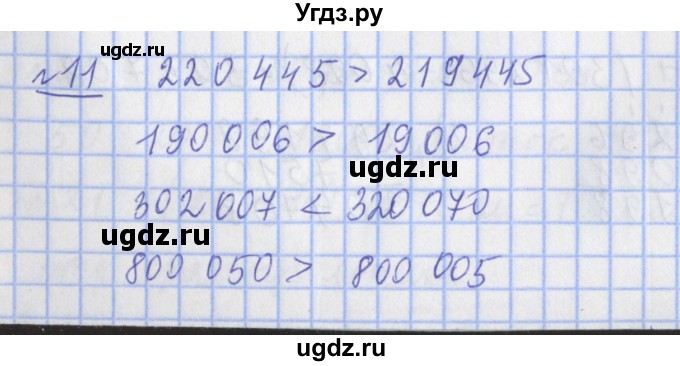 Угдз.ру
ugdz.ru
№11 220 445 > 219445
190 006 > 19 006
ugdz.ru
302 007 < 320 070
ugdz.ru
800 050 > 800 005
ugdz.ru